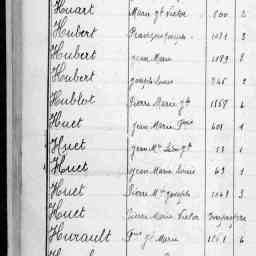 Houart Marie Jh Victor 800 2
Hubert François Joseph 1081 3
Hubert Jean Marie 1089 8
Hubert Joseph Louis 246 2
Hublot Pierre Marie Jh 1868 6
Huet Jean Marie 401 1
Huet Jean Mie 13 1
Huet Jean Marie Louis 63 1
Huet Pierre Mie Joseph 1043 3
Huet Pierre Marie Victor
Hurault Jh Marie 1861 6